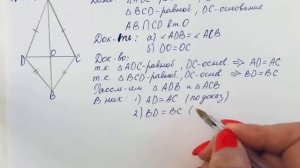 A
△BCD-равноб, DC-основание
AB∩CD в т.О
Док-ть: а) <ADB=<ACB
б) DO=OC
Док-во:
т.к △ADC-равноб, DC-основ ⇒ AD=AC
т.к △BCD-равноб, DC-основ ⇒ BD=BC
Рассм-им △ADB и △ACB
В них: 1) AD=AC (по доказ)
2) BD=BC (
D
O
C
B